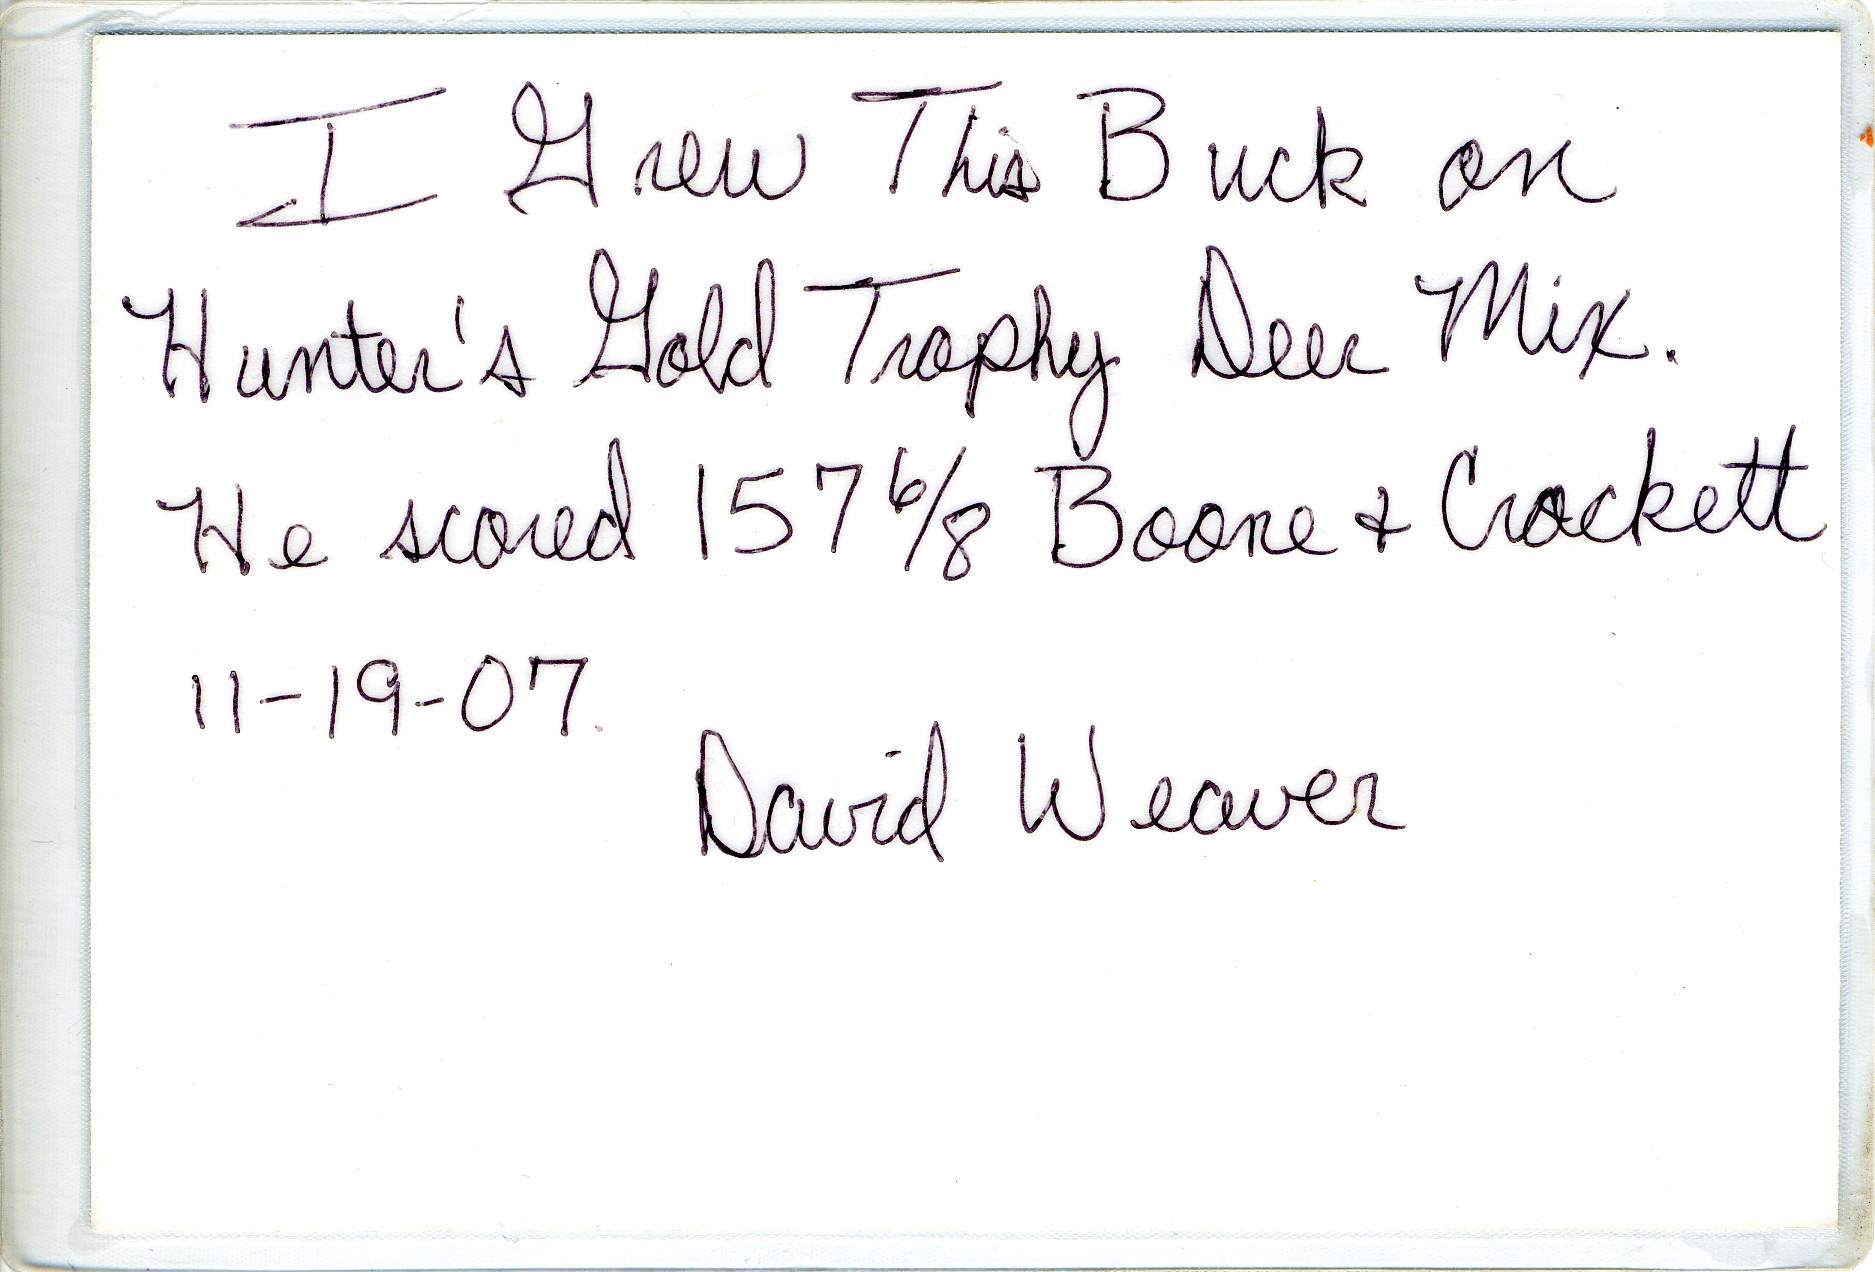 I Grew This Buck on
Hunter's Gold Trophy Deer Mix.
He scored 157 6/8 Boone & Crockett
11-19-07.
David Weaver